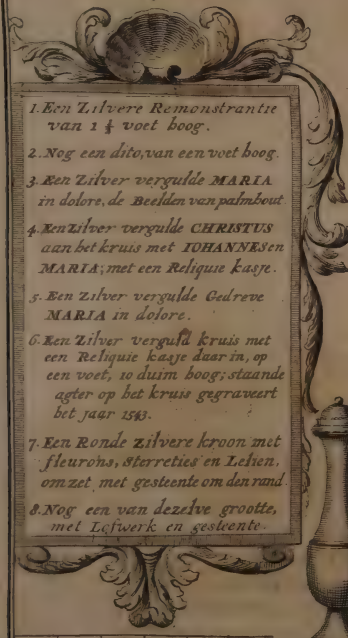 1. Een Zilvere Remonstrantie
van 1 ¼ voet hoog.
2. Nog een dito, van een voet hoog.
3. Een Zilver vergulde MARIA
in dolore, de Beelden van palmhout
4. Een zilver vergulde CHRISTUS
aan het kruis met IOHANNES en
MARIA; met een Reliquie kasje.
5. Een Zilver vergulde Gedreve
MARIA in dolore.
6. Een Zilver verguld kruis met
een Reliquie kasje daar in, op
een voet, 10 duim hoog; staande
agter op het kruis gegraveert
het jaar 1543.
7. Een Ronde zilvere kroon met
fleurons, Sterreties en Lelien,
om zet met gesteente om den rand.
8. Nog een van dezelve grootte,
met Lofwerk en gesteente.